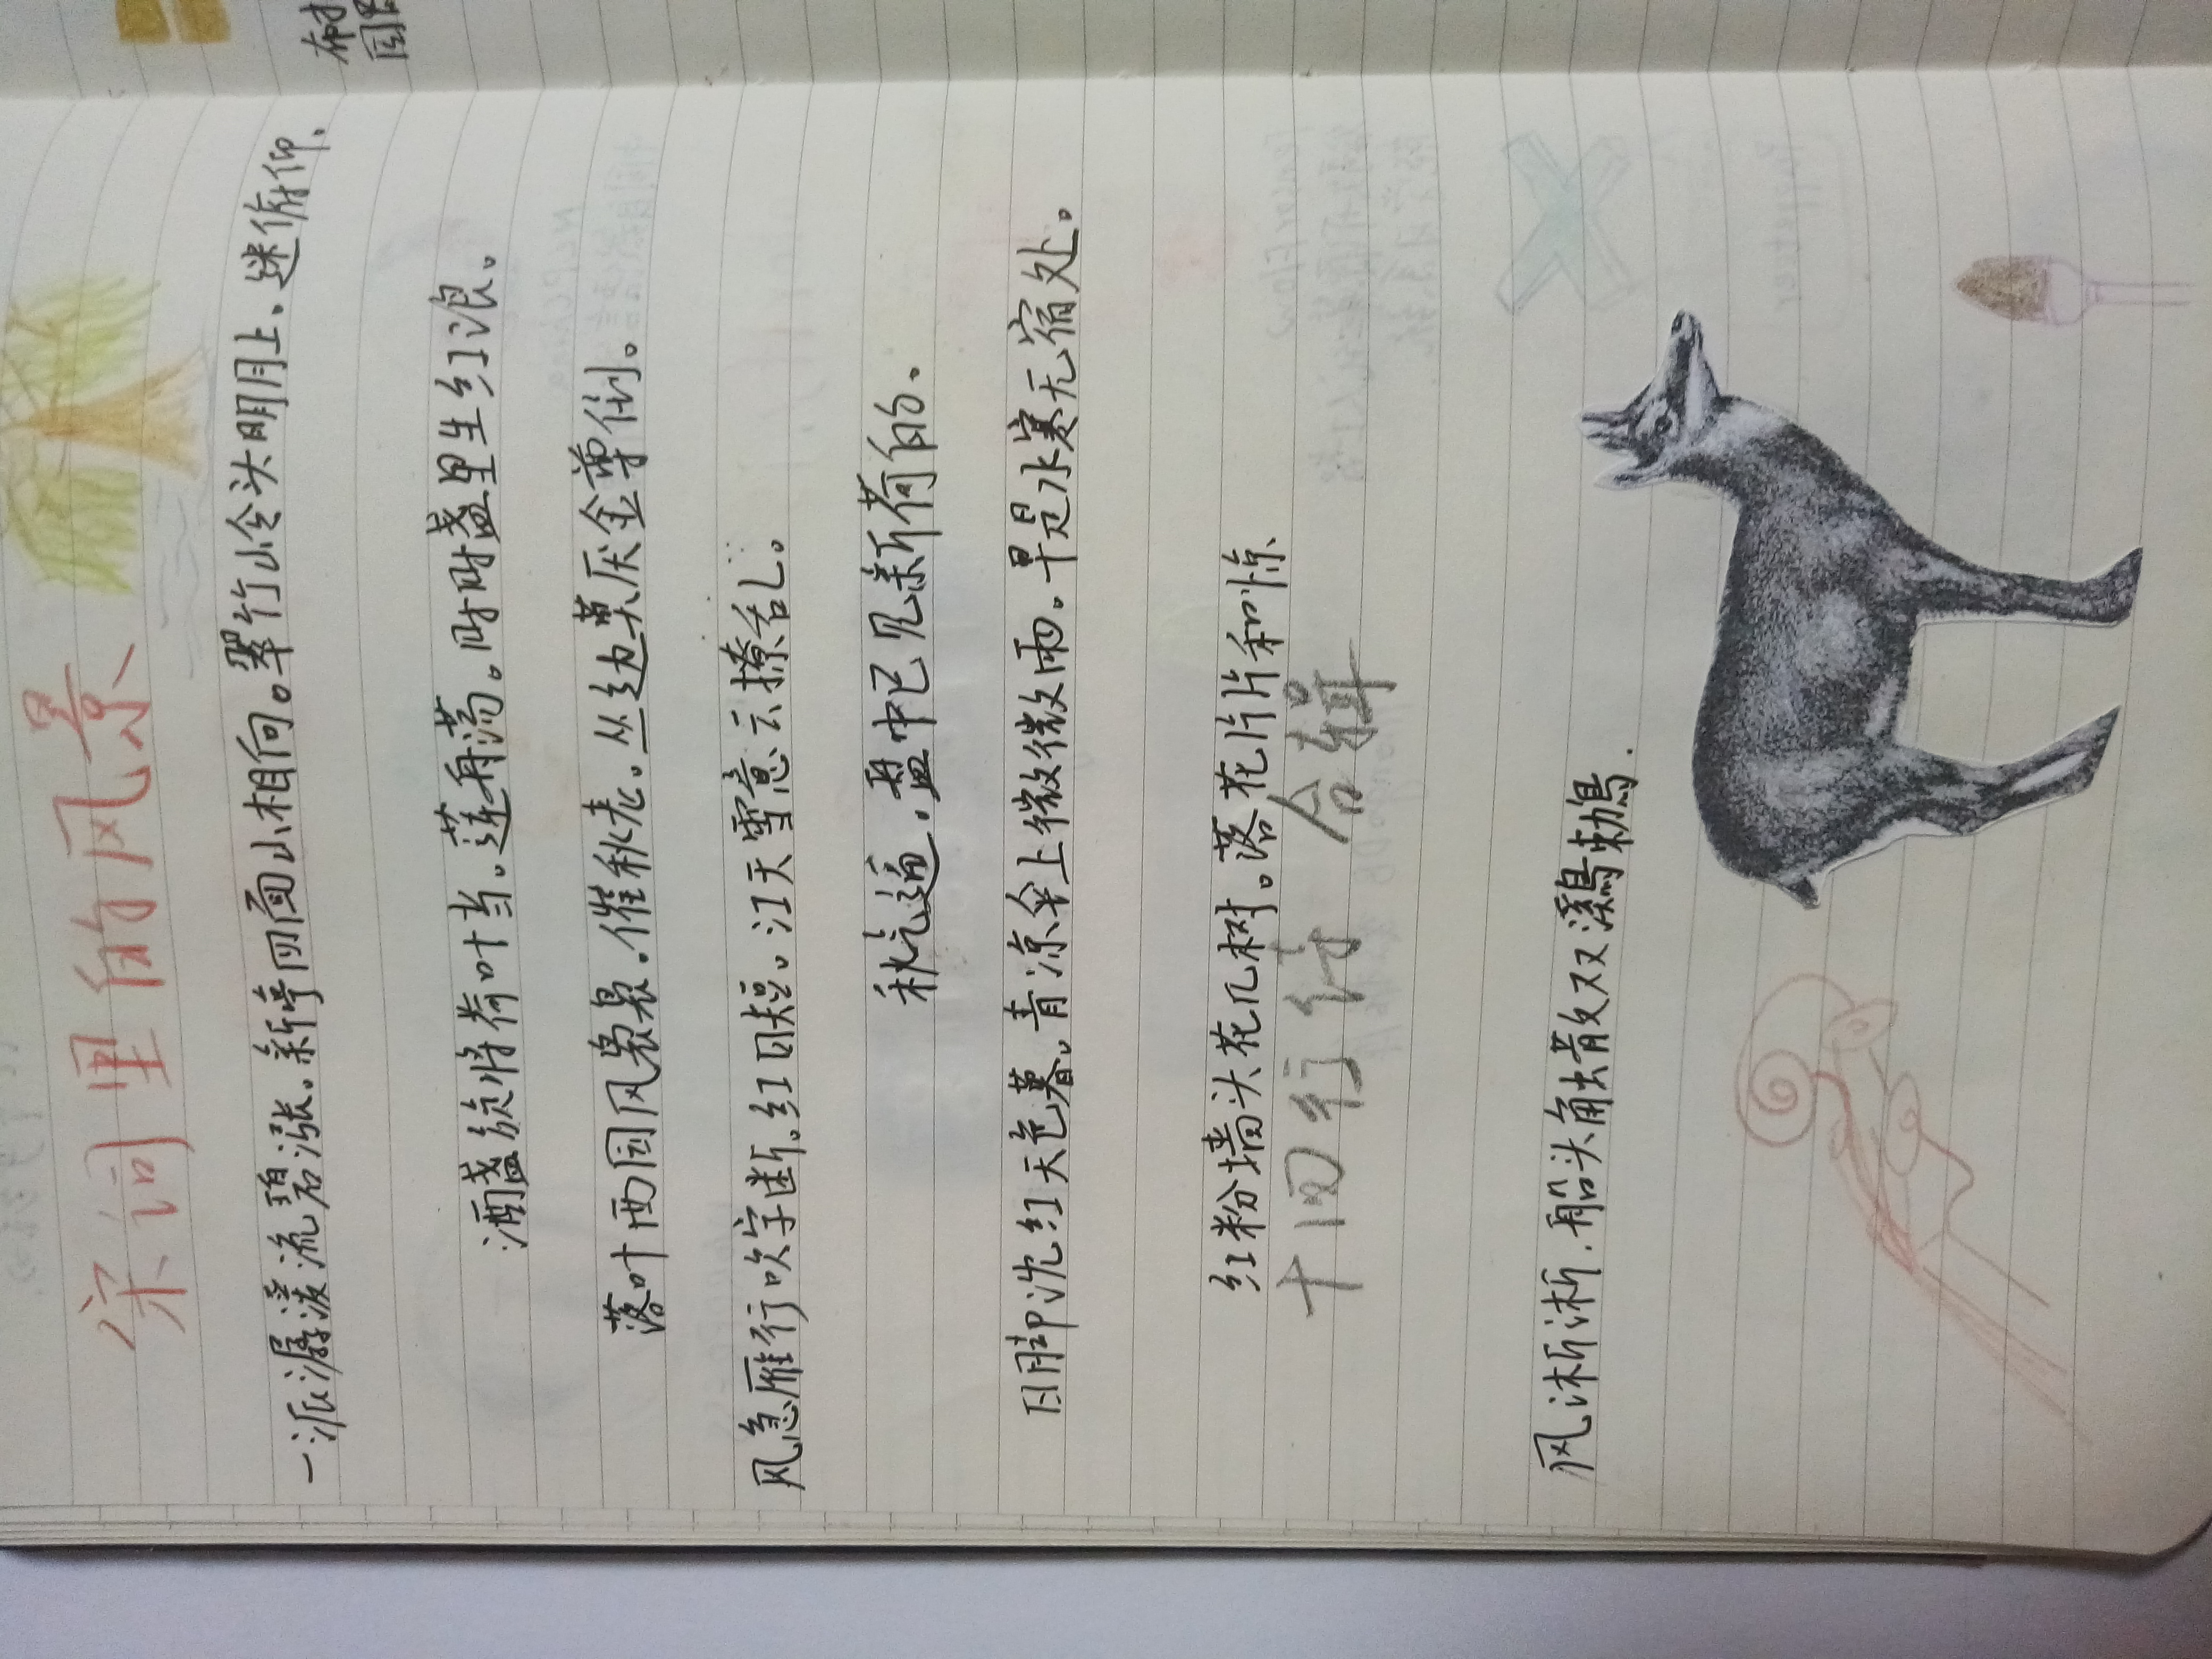 宋词里的风景
一派潺湲流碧涨。新亭四面山相向。翠竹岭头明月上、迷俯仰、
酒盏旋将荷叶当。莲舟荡。时时盏里生红浪。
落叶西园风袅袅。催秋老。丛边莫厌金尊倒。
风急雁行吹字断。红日短。江天雪意云撩乱。
秋气逼.盘中已见新荷的.
日脚沈红天色暮。青凉伞上微微雨。早是水寒无宿处。
红粉墙头花几树。落花片片和惊
十四行结 合辑
风淅淅.船头触散双鸂鶒.